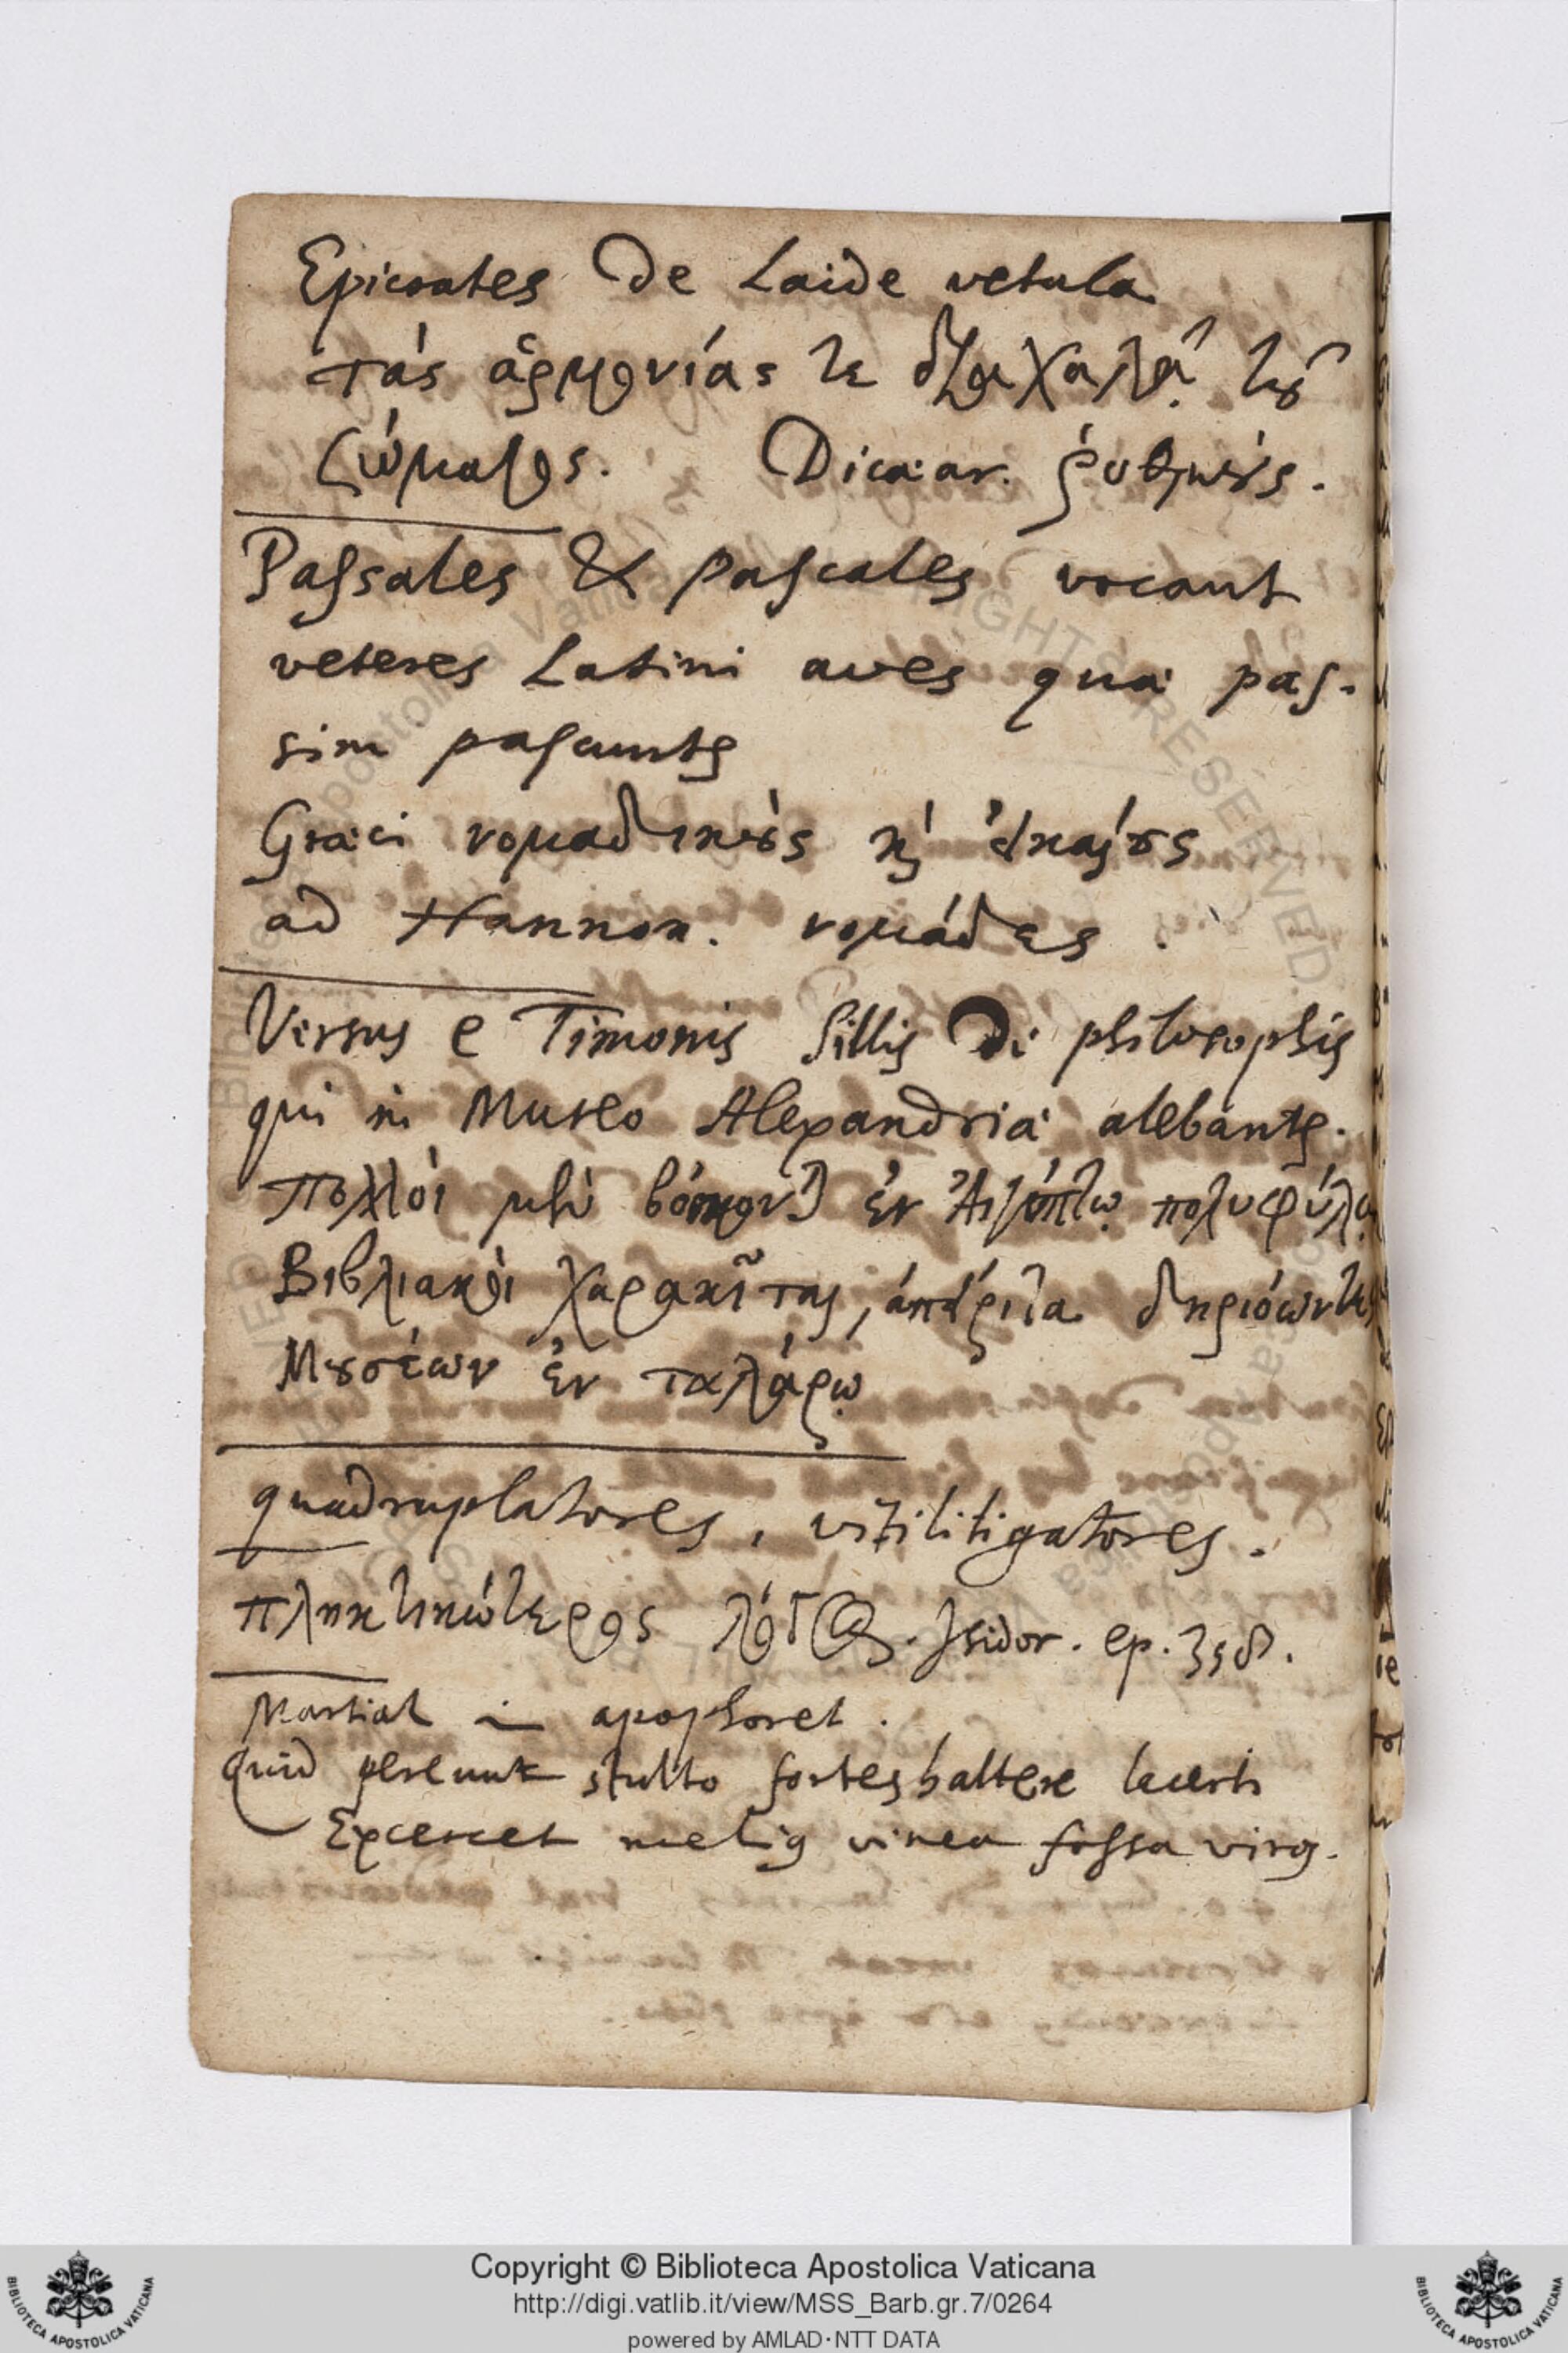 Epicrates De Laide vetula
τὰς ἁρμονίας τε διαχαλᾷ τοῦ
σώματος. Dicæar. ῥυθμούς.
Passales & pascales vocant
veteres Latini aves quæ pas-
sim pascuntr
Græci νομαδικοὺς κὶ
ad Hannon. νομάδες.
Versus e Timonis Sillis De philosophis
qui in Museo Alexandriæ alebantr.
πολλοὶ μὲν βόσκονται ἐν Αἰγύπτῳ πολυφύλῳ
Βιβλιακοὶ χαρακῖται, ἀπείριτα δηριόωντες
Μουσέων ἐν ταλάρῳ
quadruplatores, vitilitigatores.
πληκτικώτερος λόγος. Isidor. ep.
Martial in apophoret.
Quid pereunt stulto fortes haltere lacerti
Excercet melius vinea fossa viros.
Copyright © Biblioteca Apostolica Vaticana
http://digi.vatlib.it/view/MSS_Barb.gr.7/0264
powered by AMLAD·NTT DATA
BIBLIOTECA APOSTOLICA VATICANA
BIBLIOTECA APOSTOLICA VATICANA